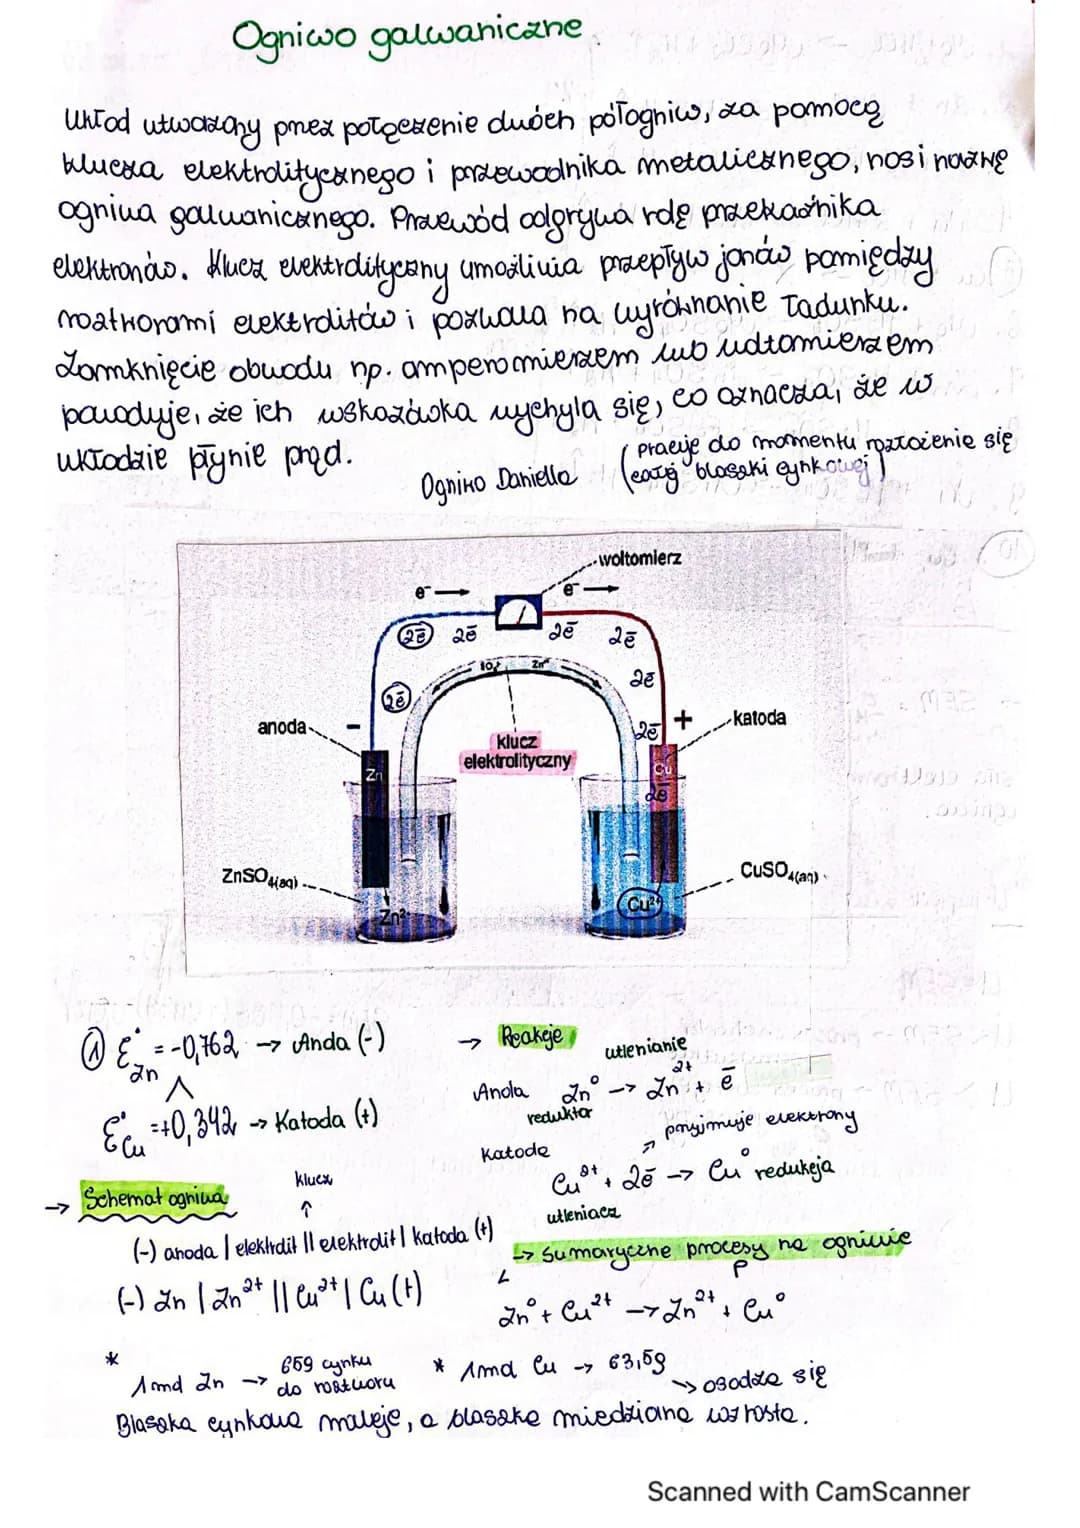 Ogniwo galwaniczne
Układ utworzony przez połączenie dwóch półogniw, za pomocą
klucza elektrolitycznego i przewodnika metalicznego, nosi nazwę
ogniwa galwanicznego. Przewód odgrywa rolę przekaźnika
elektronów. Klucz elektrolityczny umożliwia przepływ jonów pomiędzy
roztworami elektrolitów i pozwala na wyrównanie ładunku.
Zamknięcie obwodu np. amperomierzem lub woltomierzem
powoduje, że ich wskazówka wychyla się, co oznacza, że w
układzie płynie prąd.
Ogniwo Daniella (pracuje do momentu roztożenie się
całej blaszki cynkowej)
woltomierz
e⁻ → e⁻ →
2ē 2ē 2ē 2ē
Zn²⁺
2ē
2ē
anoda - 2ē + katoda
klucz
elektrolityczny
Zn Cu
2ē
ZnSO₄(aq) CuSO₄(aq)
Zn²⁺ Cu²⁺
① E°Zn = -0,762 → Anda (-)
^
E°Cu = +0,342 → Katoda (+)
→ Reakcje
utlenianie
Anoda Zn⁰ → Zn²⁺ + ē
reduktor
przyjmuje elektrony
Katoda
Cu²⁺ + 2ē → Cu⁰ redukcja
utleniacz
→ Schemat ogniwa
klucz
↑
(-) anoda | elektrolit || elektrolit | katoda (+)
(-) Zn | Zn²⁺ || Cu²⁺ | Cu (+)
↳ Sumaryczne procesy na ogniwie
L P
Zn⁰ + Cu²⁺ → Zn²⁺ + Cu⁰
* 1mol Zn → 65g cynku
do roztworu
* 1mol Cu → 63,5g
→ osadza się
Blaszka cynkowa maleje, a blaszka miedziana wzrosta.
Scanned with CamScanner